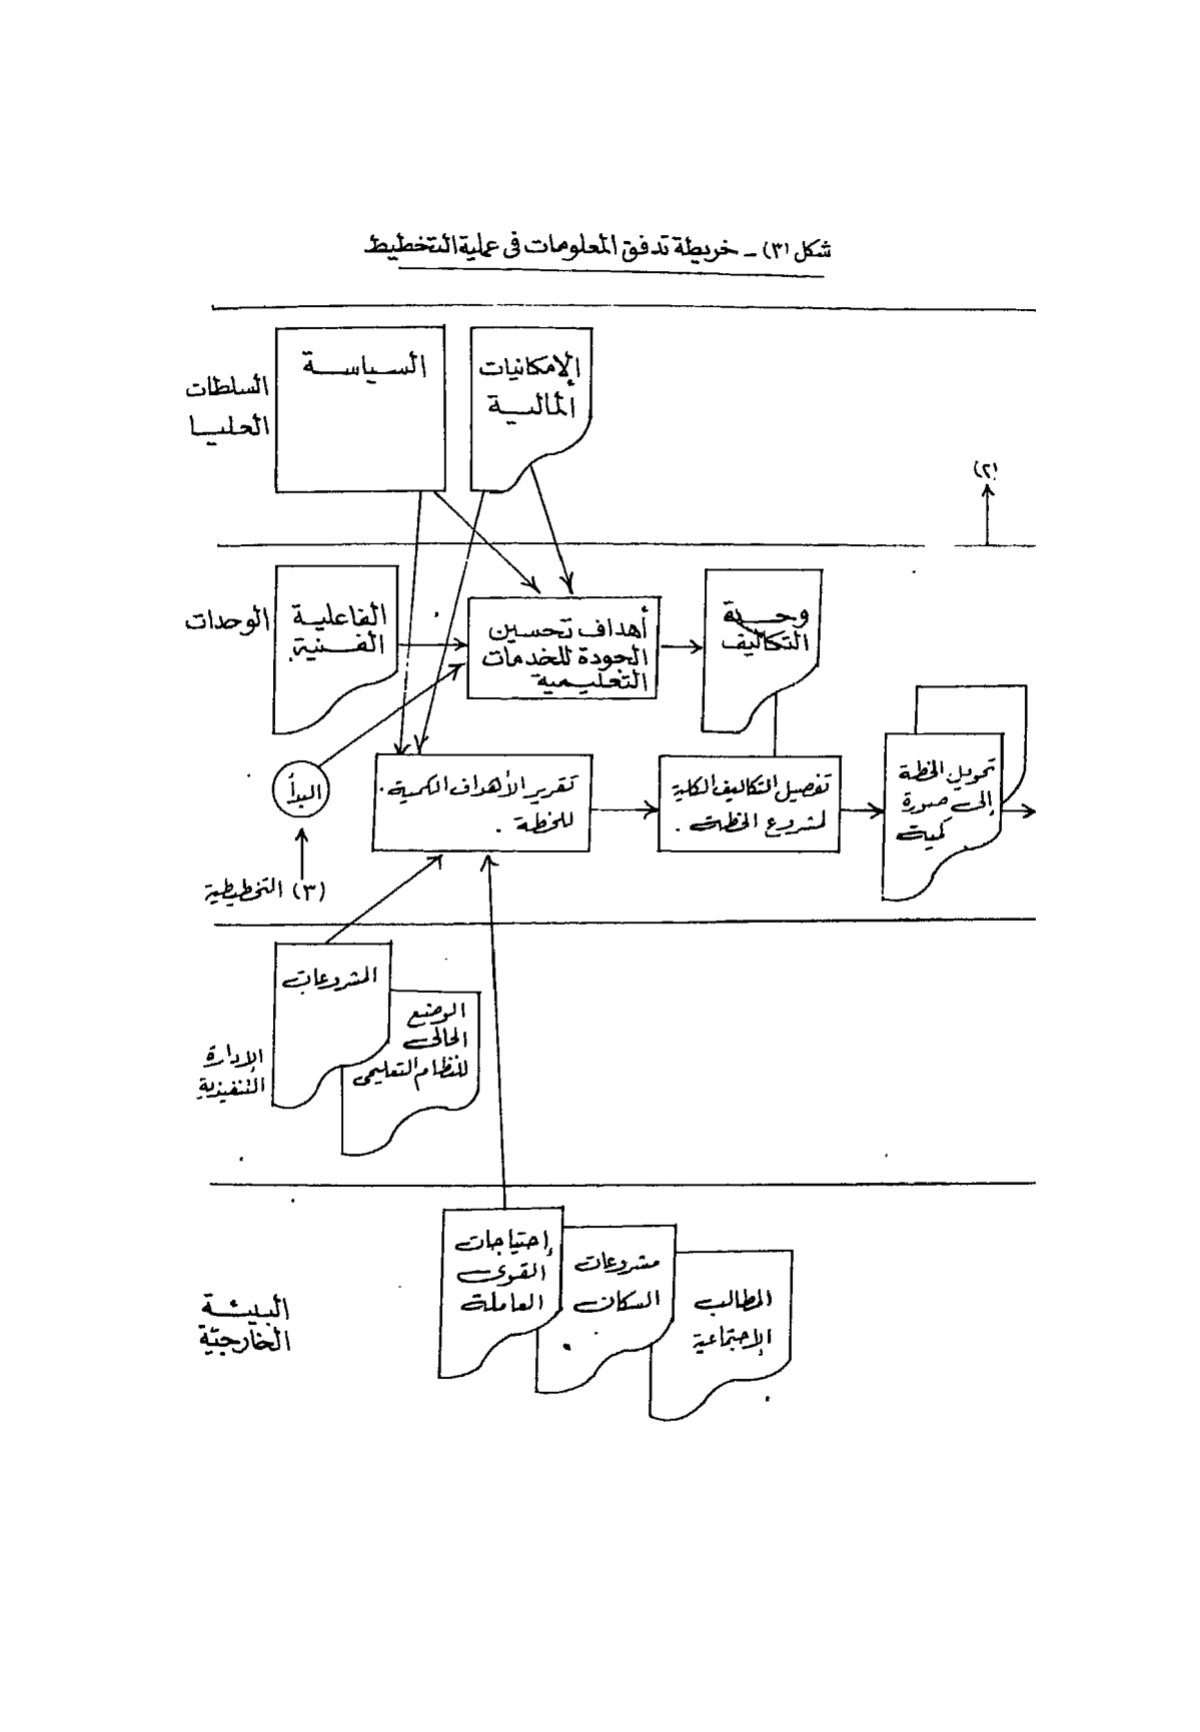 شكل (٣) ـ خريطة تدفق المعلومات فى عملية التخطيط
السلطات
العليا
السياسة
الإمكانيات
المالية
(٢)
الوحدات
الفاعلية
الفنية
أهداف تحسين
الجودة للخدمات
التعليمية
وحدة
التكاليف
البدأ
(٣) التخطيطية
تقرير الأهداف الكمية
للخطة .
تفصيل التكاليف الكلية
لمشروع الخطة .
تحويل الخطة
إلى صورة
كمية
الإدارة
التنفيذية
المشروعات
الوضع
الحالى
للنظام التعليمى
البيئة
الخارجية
إحتياجات
القوى
العاملة
مشروعات
السكان
المطالب
الإجتماعية